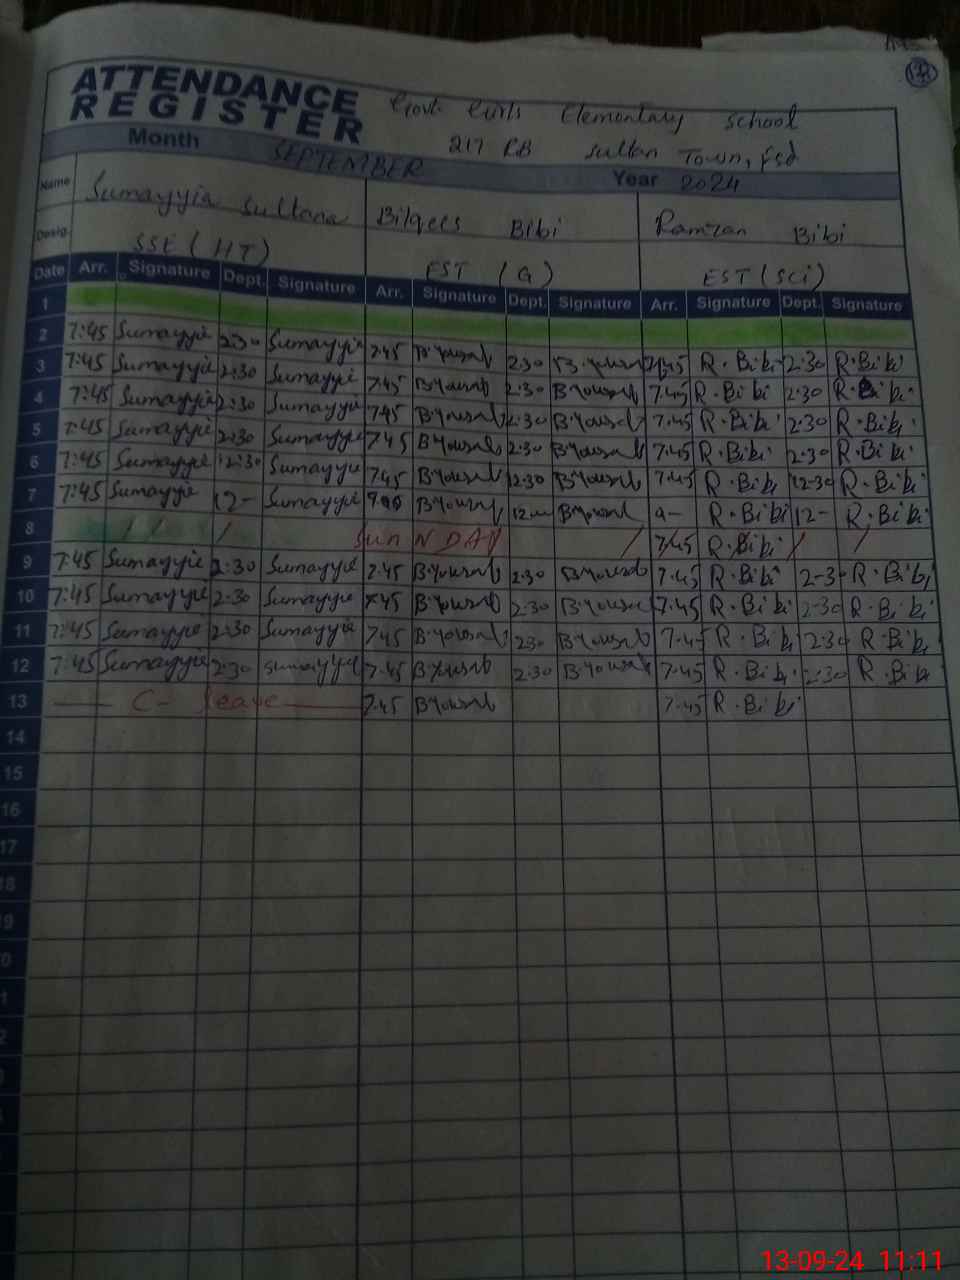 ATTENDANCE REGISTER
Govt. Girls Elementary School
217 RB Sultan Town, Fsd
Month SEPTEMBER Year 2024
Name Sumayyia Sultana Bilqees Bibi Ramzan Bibi
Desig. SSE (HT) EST (G) EST (SCi)
Date Arr. Signature Dept. Signature Arr. Signature Dept. Signature Arr. Signature Dept. Signature
1
2 7:45 Sumayyie 2:30 Sumayyie 7.45 B.Yousab 2.30 B.Yousab 7.45 R.Bibi 2:30 R.Bibi
3 7:45 Sumayyie 2:30 Sumayyie 7.45 B.Yousab 2.30 B.Yousab 7.45 R.Bibi 2:30 R.Bibi
4 7:45 Sumayyie 2:30 Sumayyie 7.45 B.Yousab 2.30 B.Yousab 7.45 R.Bibi 2:30 R.Bibi
5 7:45 Sumayyie 2:30 Sumayyie 7.45 B.Yousab 2.30 B.Yousab 7.45 R.Bibi 2:30 R.Bibi
6 7:45 Sumayyie 12:30 Sumayyie 7.45 B.Yousab 12.30 B.Yousab 7.45 R.Bibi 12-30 R.Bibi
7 7:45 Sumayyie 12- Sumayyie B.Yousab B.Yousab 9- R.Bibi 12- R.Bibi
8 Sun N DAY 7.45 R.Bibi
9 7:45 Sumayyie 2:30 Sumayyie 7.45 B.Yousab 2.30 B.Yousab 7.45 R.Bibi 2-30 R.Bibi
10 7:45 Sumayyie 2:30 Sumayyie 7.45 B.Yousab 2.30 B.Yousab 7.45 R.Bibi 2-30 R.Bibi
11 7:45 Sumayyie 2:30 Sumayyie 7.45 B.Yousab 2.30 B.Yousab 7.45 R.Bibi 2:30 R.Bibi
12 7:45 Sumayyie 2:30 Sumayyie 7.45 B.Yousab 2.30 B.Yousab 7.45 R.Bibi 2:30 R.Bibi
13 C- leave 7.45 B.Yousab 7.45 R.Bibi
14
15
16
17
18
19
13-09-24 11:11